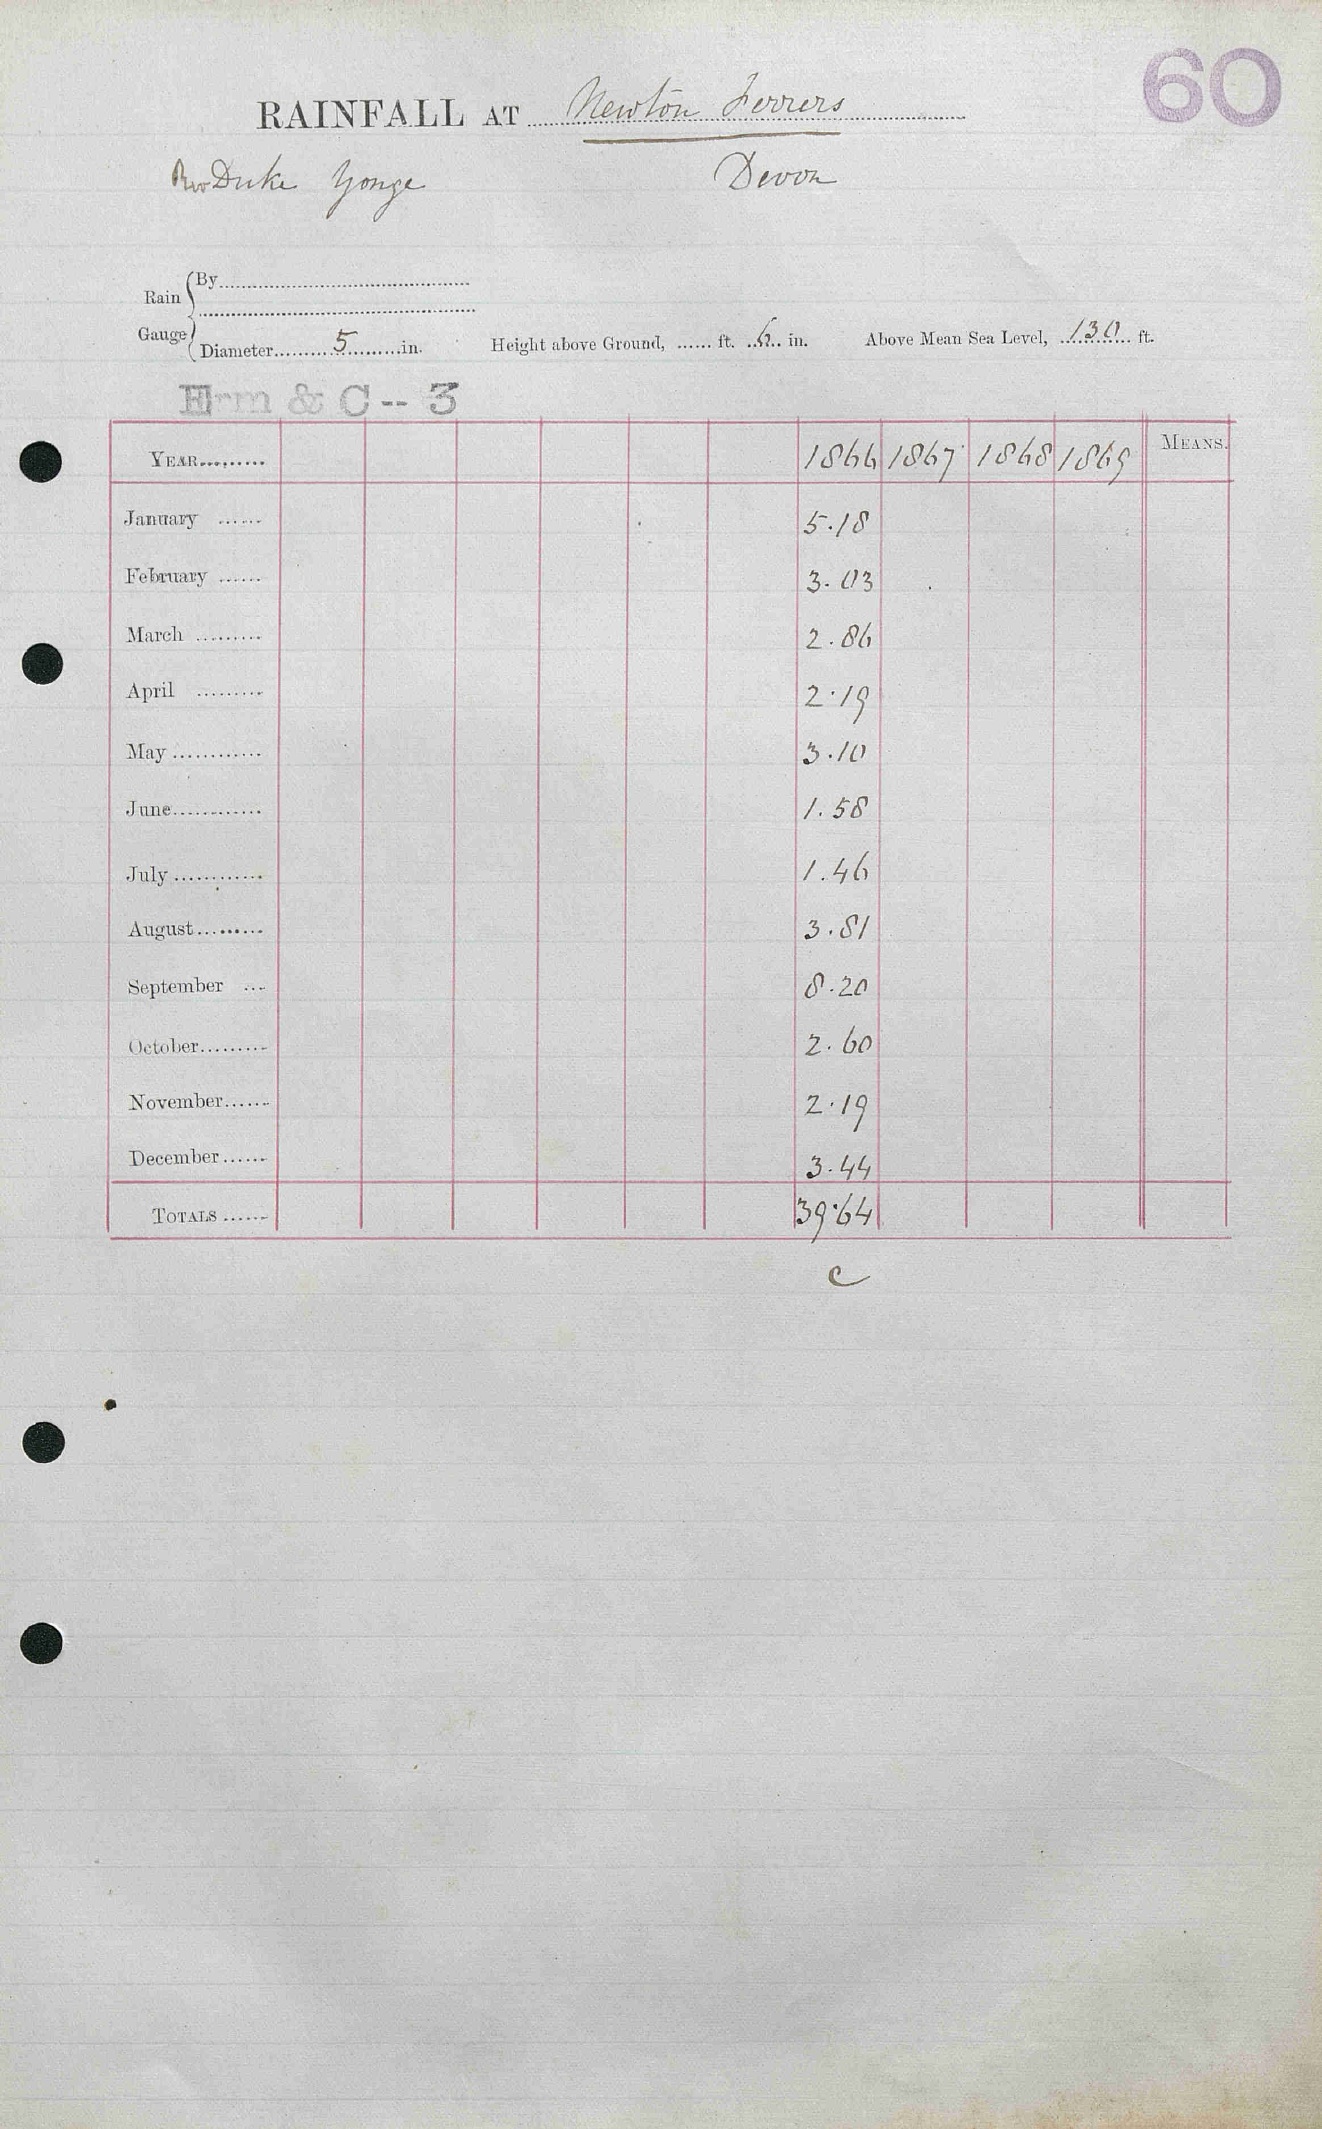 60
RAINFALL AT Newton Ferrers
Rev Duke Yonge Devon
Rain Gauge
By
Diameter 5 in. Height above Ground, ft. 6 in. Above Mean Sea Level, 130 ft.
Erm & C -- 3
YEAR 1866 1867 1868 1869 MEANS.
January 5.18
February 3.03
March 2.86
April 2.19
May 3.10
June 1.58
July 1.46
August 3.81
September 8.20
October 2.60
November 2.19
December 3.44
TOTALS 39.64
c